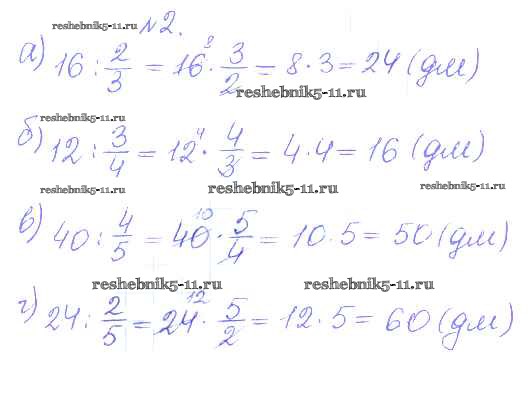 reshebnik5-11.ru №2.
а) 16 : 2/3 = 16⁸ · 3/2 = 8 · 3 = 24 (дм)
reshebnik5-11.ru
reshebnik5-11.ru
б) 12 : 3/4 = 12⁴ · 4/3 = 4 · 4 = 16 (дм)
reshebnik5-11.ru reshebnik5-11.ru reshebnik5-11.ru
в) 40 : 4/5 = 40¹⁰ · 5/4 = 10 · 5 = 50 (дм)
reshebnik5-11.ru reshebnik5-11.ru
г) 24 : 2/5 = 24¹² · 5/2 = 12 · 5 = 60 (дм)